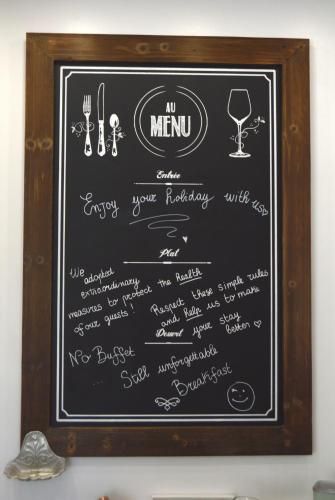 AU
MENU
Entrée
Enjoy your holiday with us
Plat
We adopted
extraordinary
measures to protect the Health
of our guests!
Respect these simple rules
and Help us to make
your stay
better
Dessert
No Buffet
... Still unforgettable
Breakfast